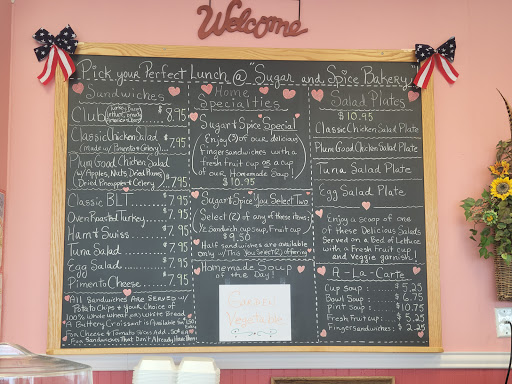 Welcome
Pick your Perfect Lunch @ "Sugar and Spice Bakery"
Sandwiches
Club $8.95
Classic Chicken Salad
(made w/ Pimento & Celery) $7.95
Plum Good Chicken Salad
(w/ Apples, Nuts, Dried Plums,
Dried Pineapple & Celery) $7.95
Classic BLT $7.95
Oven Roasted Turkey $7.95
Ham & Swiss $7.95
Tuna Salad $7.95
Egg Salad $7.95
Pimento Cheese $7.95
All Sandwiches Are Served w/
Potato Chips & your Choice of
100% Whole Wheat or White Bread
A Buttery Croissant is Available For
For Cheese & Tomato Slices Add .50¢ ea
For Sandwiches That Don't Already Have Them
Home
Specialties
Sugar & Spice Special
Enjoy (3) of our delicious
fingersandwiches with a
fresh fruit cup or a cup
of our Homemade Soup!
$10.95
Sugar & Spice You Select Two
Select (2) of any of these items:
½ Sandwich, Cup Soup, Fruit cup
$9.50
Half sandwiches are available
only w/ This You Select (2) offering
Homemade Soup
of the Day!
Garden
Vegetable
Salad Plates
$10.95
Classic Chicken Salad Plate
Plum Good Chicken Salad Plate
Tuna Salad Plate
Egg Salad Plate
Enjoy a scoop of one
of these Delicious Salads
Served on a Bed of Lettuce
with a Fresh Fruit cup
and veggie garnish!
A-La-Carte
Cup soup: $5.25
Bowl Soup: $6.75
Pint Soup: $10.75
Fresh Fruit cup: $5.25
Fingersandwiches: $2.25